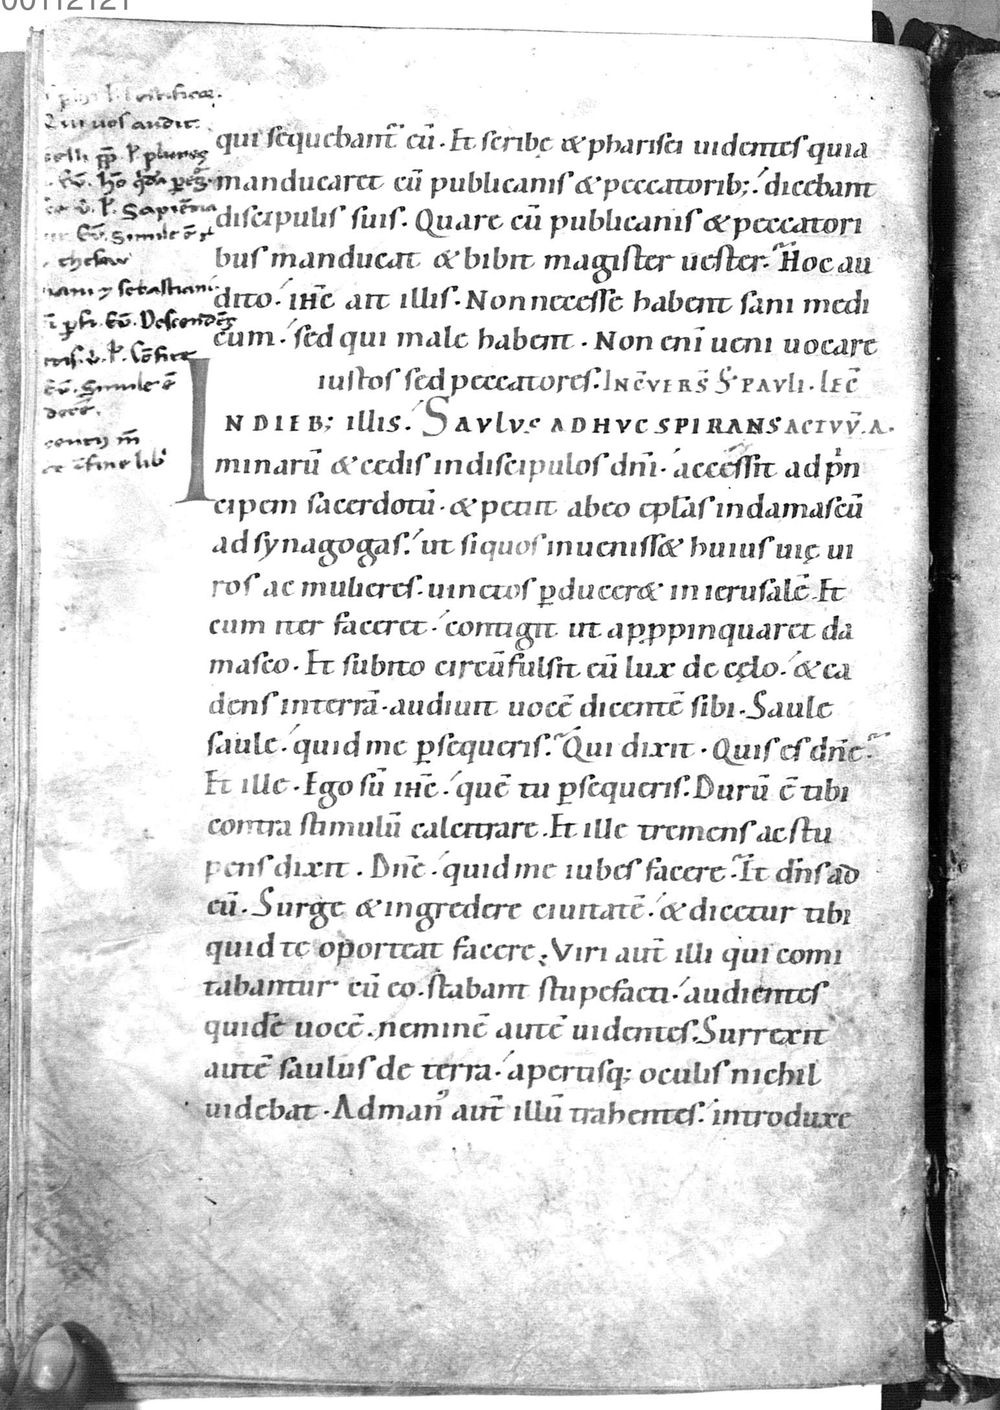 00112121
Qui uos audit.
Sapien
Eu. Simile
sebastiani
Eu. Descendēs
Eu. Simile ē
in fine lib
qui sequebant̄ eū. Et scribę & pharisei uidentes quia
manducaret cū publicanis & peccatorib; dicebant
discipulis suis. Quare cū publicanis & peccatori
bus manducat & bibit magister uester. Hoc au
dito. ihc̄ ait illis. Non necesse habent sani medi
cum. sed qui male habent. Non eni ueni uocare
iustos sed peccatores. IN CŌVERS̄ S̄ PAVLI. LEC̄
IN DIEB; illis. SAVLVS ADHVC SPIRANS ACTVV̄. A.
minarū & cedis in discipulos dn̄i. accessit ad pn
cipem sacerdotū. & petiit ab eo epl̄as in damascū
ad synagogas. ut si quos inuenisset huius uię ui
ros ac mulieres. uinctos ꝑduceret in ierusalē. Et
cum iter faceret. contigit ut appropinquaret da
masco. Et subito circūfulsit eū lux de cęlo. & ca
dens in terrā. audiuit uocē dicentē sibi. Saule
saule. quid me ꝑsequeris. Qui dixit. Quis es dn̄e.
Et ille. Ego sū ihc̄. quē tu ꝑsequeris. Durū ē tibi
contra stimulū calcitrare. Et ille tremens ac stu
pens dixit. Dn̄e. quid me iubes facere. Et dn̄s ad
eū. Surge & ingredere ciuitatē. & dicetur tibi
quid te oporteat facere; Viri aut̄ illi qui comi
tabantur cū eo. stabant stupefacti. audientes
quidē uocē. neminē autē uidentes. Surrexit
autē saulus de terra. apertisq; oculis nichil
uidebat. Ad man᾽ aut̄ illū trahentes. introduxe